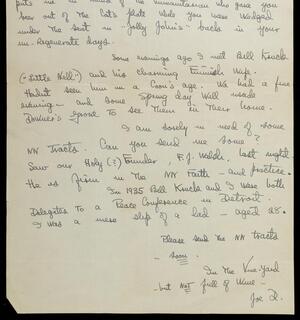 puts me in mind of the humanitarian who gave you
beer out of the Cat's plate while you were wedged
under the seat in "Jolly John's" back in your
un-Regenerate days.
Some evenings ago I met Bill Knecks
("Little Bill") and his charming Finnish wife.
Hadn't seen him in a Coon's age. We had a fine
evening - and some Spring day will make
good to see them in their home.
I am sorely in need of some
NN Tracts. Can you send me some?
Saw our Holy (?) Founder, F. J. Walsh, last night
He is firm in the NN Faith - and practice.
In 1935 Bill Knecks and I were both
Delegates to a Peace Conference in Detroit.
I was a mere slip of a lad - aged 28.
Please send the NN tracts
- soon.
In the Vine-Yard
- but NOT full of Wine -
Joe D.